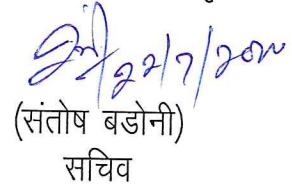 22/7/2020
(संतोष बडोनी)
सचिव